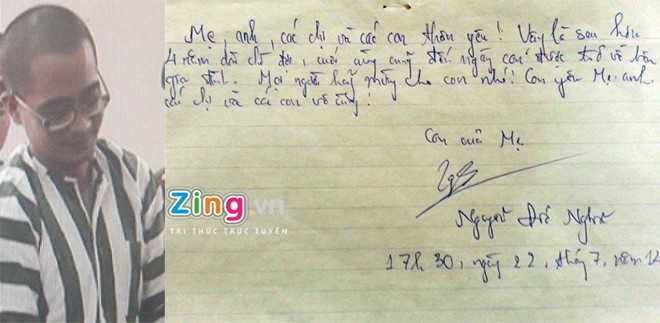 Mẹ, anh, các chị và các con thân yêu! Vậy là sau hơn
4 năm dài chờ đợi, cuối cùng cũng đến ngày con được trở về bên
gia đình. Mọi người hãy mừng cho con nhé! Con yêu Mẹ, anh
các chị và các con vô cùng!
Con của Mẹ
Zing.vn
TRI THỨC TRỰC TUYẾN
Nguyễn Đức Nghĩa
17h 30, ngày 22, tháng 7, năm 14